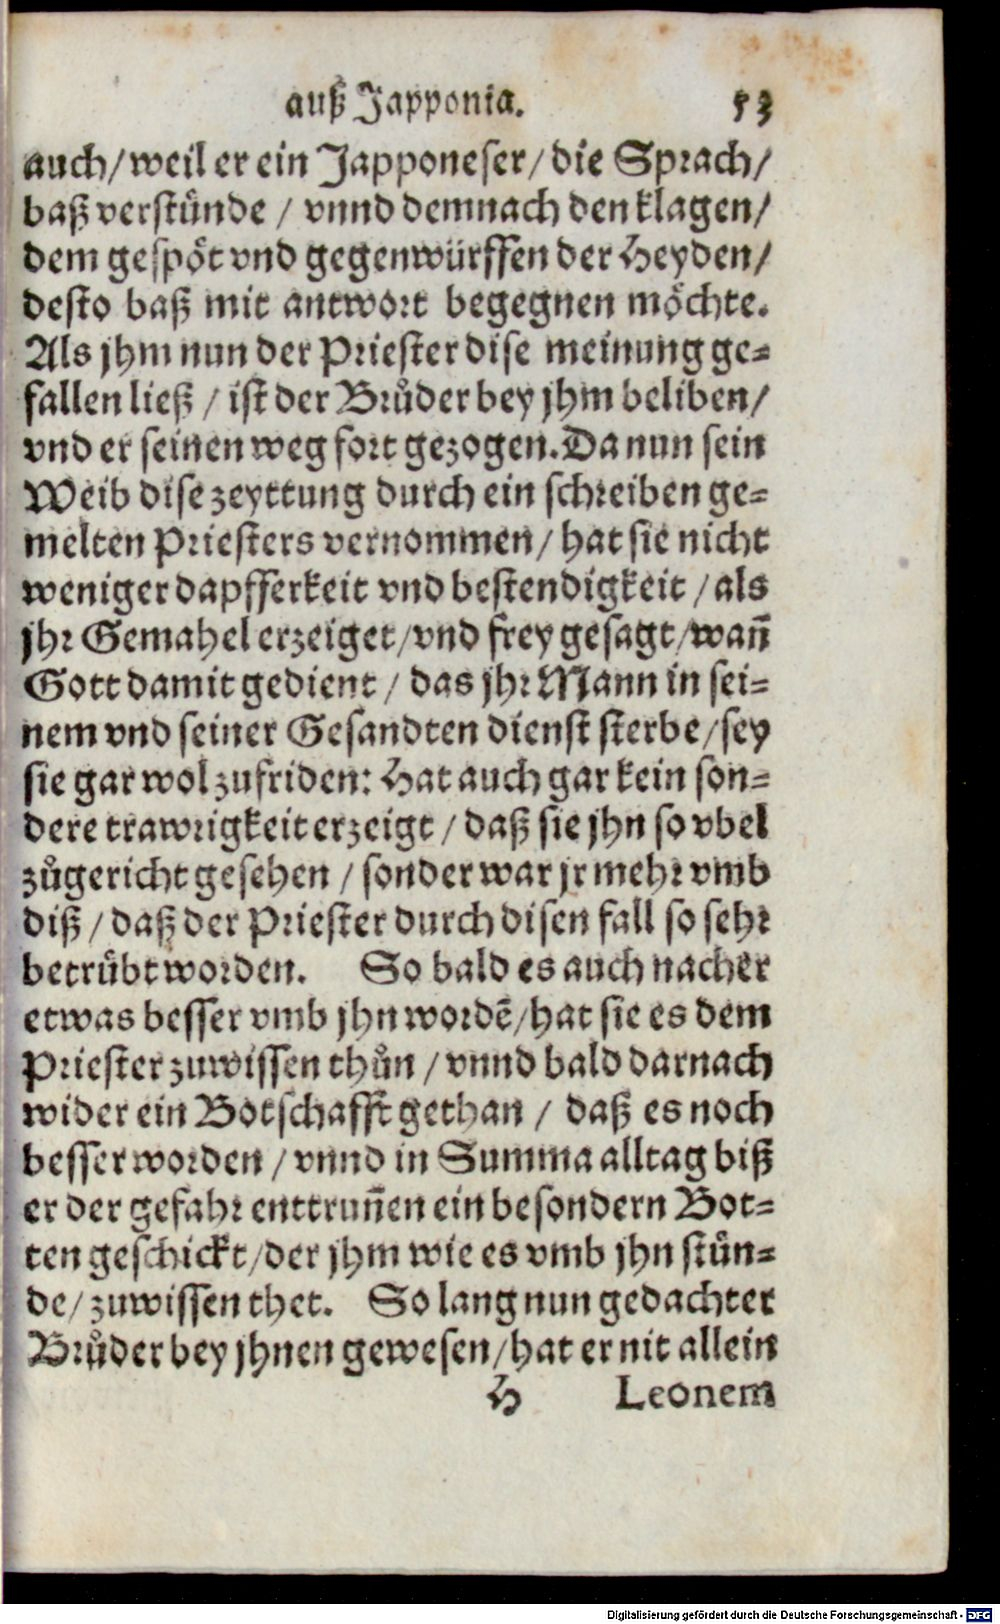 auß Japponia. 53
auch/ weil er ein Japponeser/ die Sprach/
baß verstünde / vnnd demnach den klagen/
dem gespöt vnd gegenwürffen der Heyden/
desto baß mit antwort begegnen möchte.
Als jhm nun der Priester dise meinung ge=
fallen ließ / ist der Brůder bey jhm beliben/
vnd er seinen weg fort gezogen. Da nun sein
Weib dise zeyttung durch ein schreiben ge=
melten Priesters vernommen / hat sie nicht
weniger dapfferkeit vnd bestendigkeit / als
jhr Gemahel erzeiget/ vnd frey gesagt/ wañ
Gott damit gedient / das jhr Mann in sei=
nem vnd seiner Gesandten dienst sterbe/ sey
sie gar wol zufriden: Hat auch gar kein son=
dere trawrigkeit erzeigt / daß sie jhn so vbel
zůgericht gesehen / sonder war jr mehr vmb
diß / daß der Priester durch disen fall so sehr
betrübt worden. So bald es auch nacher
etwas besser vmb jhn wordẽ/ hat sie es dem
Priester zuwissen thůn / vnnd bald darnach
wider ein Botschafft gethan / daß es noch
besser worden / vnnd in Summa alltag biß
er der gefahr enttruñen ein besondern Bot=
ten geschickt/ der jhm wie es vmb jhn stün=
de/ zuwissen thet. So lang nun gedachter
Brůder bey jhnen gewesen/ hat er nit allein
H Leonem
Digitalisierung gefördert durch die Deutsche Forschungsgemeinschaft - DFG